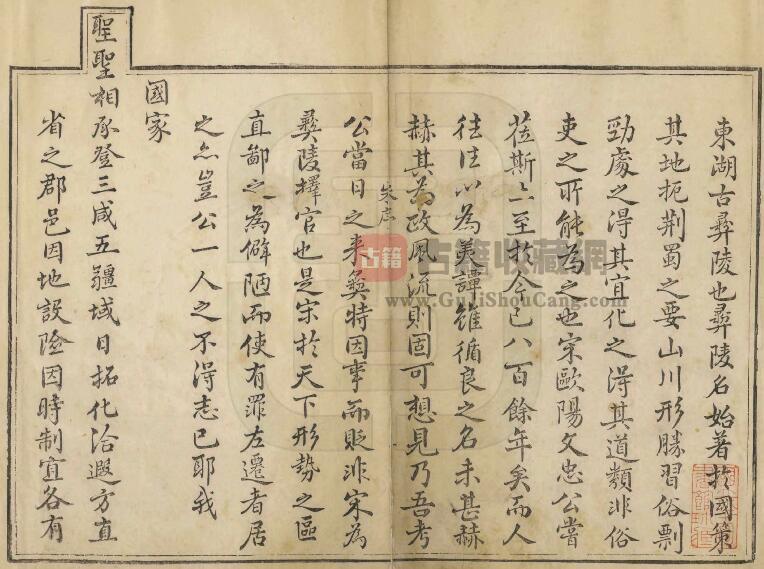 東湖古彝陵也彝陵名始著於國策
其地扼荊蜀之要山川形勝習俗剽
勁處之得其宜化之得其道類非俗
吏之所能為之也宋歐陽文忠公嘗
蒞斯土至於今已八百餘年矣而人
往往以為美譚雖循良之名未甚赫
赫其為政風流則固可想見乃吾考
朱序
公當日之來彝特因事而貶非宋為
彝陵擇官也是宋於天下形勢之區
直鄙之為僻陋而使有罪左遷者居
之亦豈公一人之不得志已耶我
國家
聖聖相承登三咸五疆域日拓化洽遐方直
省之郡邑因地設險因時制宜各有
古籍
古籍收藏網
www.GuJiShouCang.com